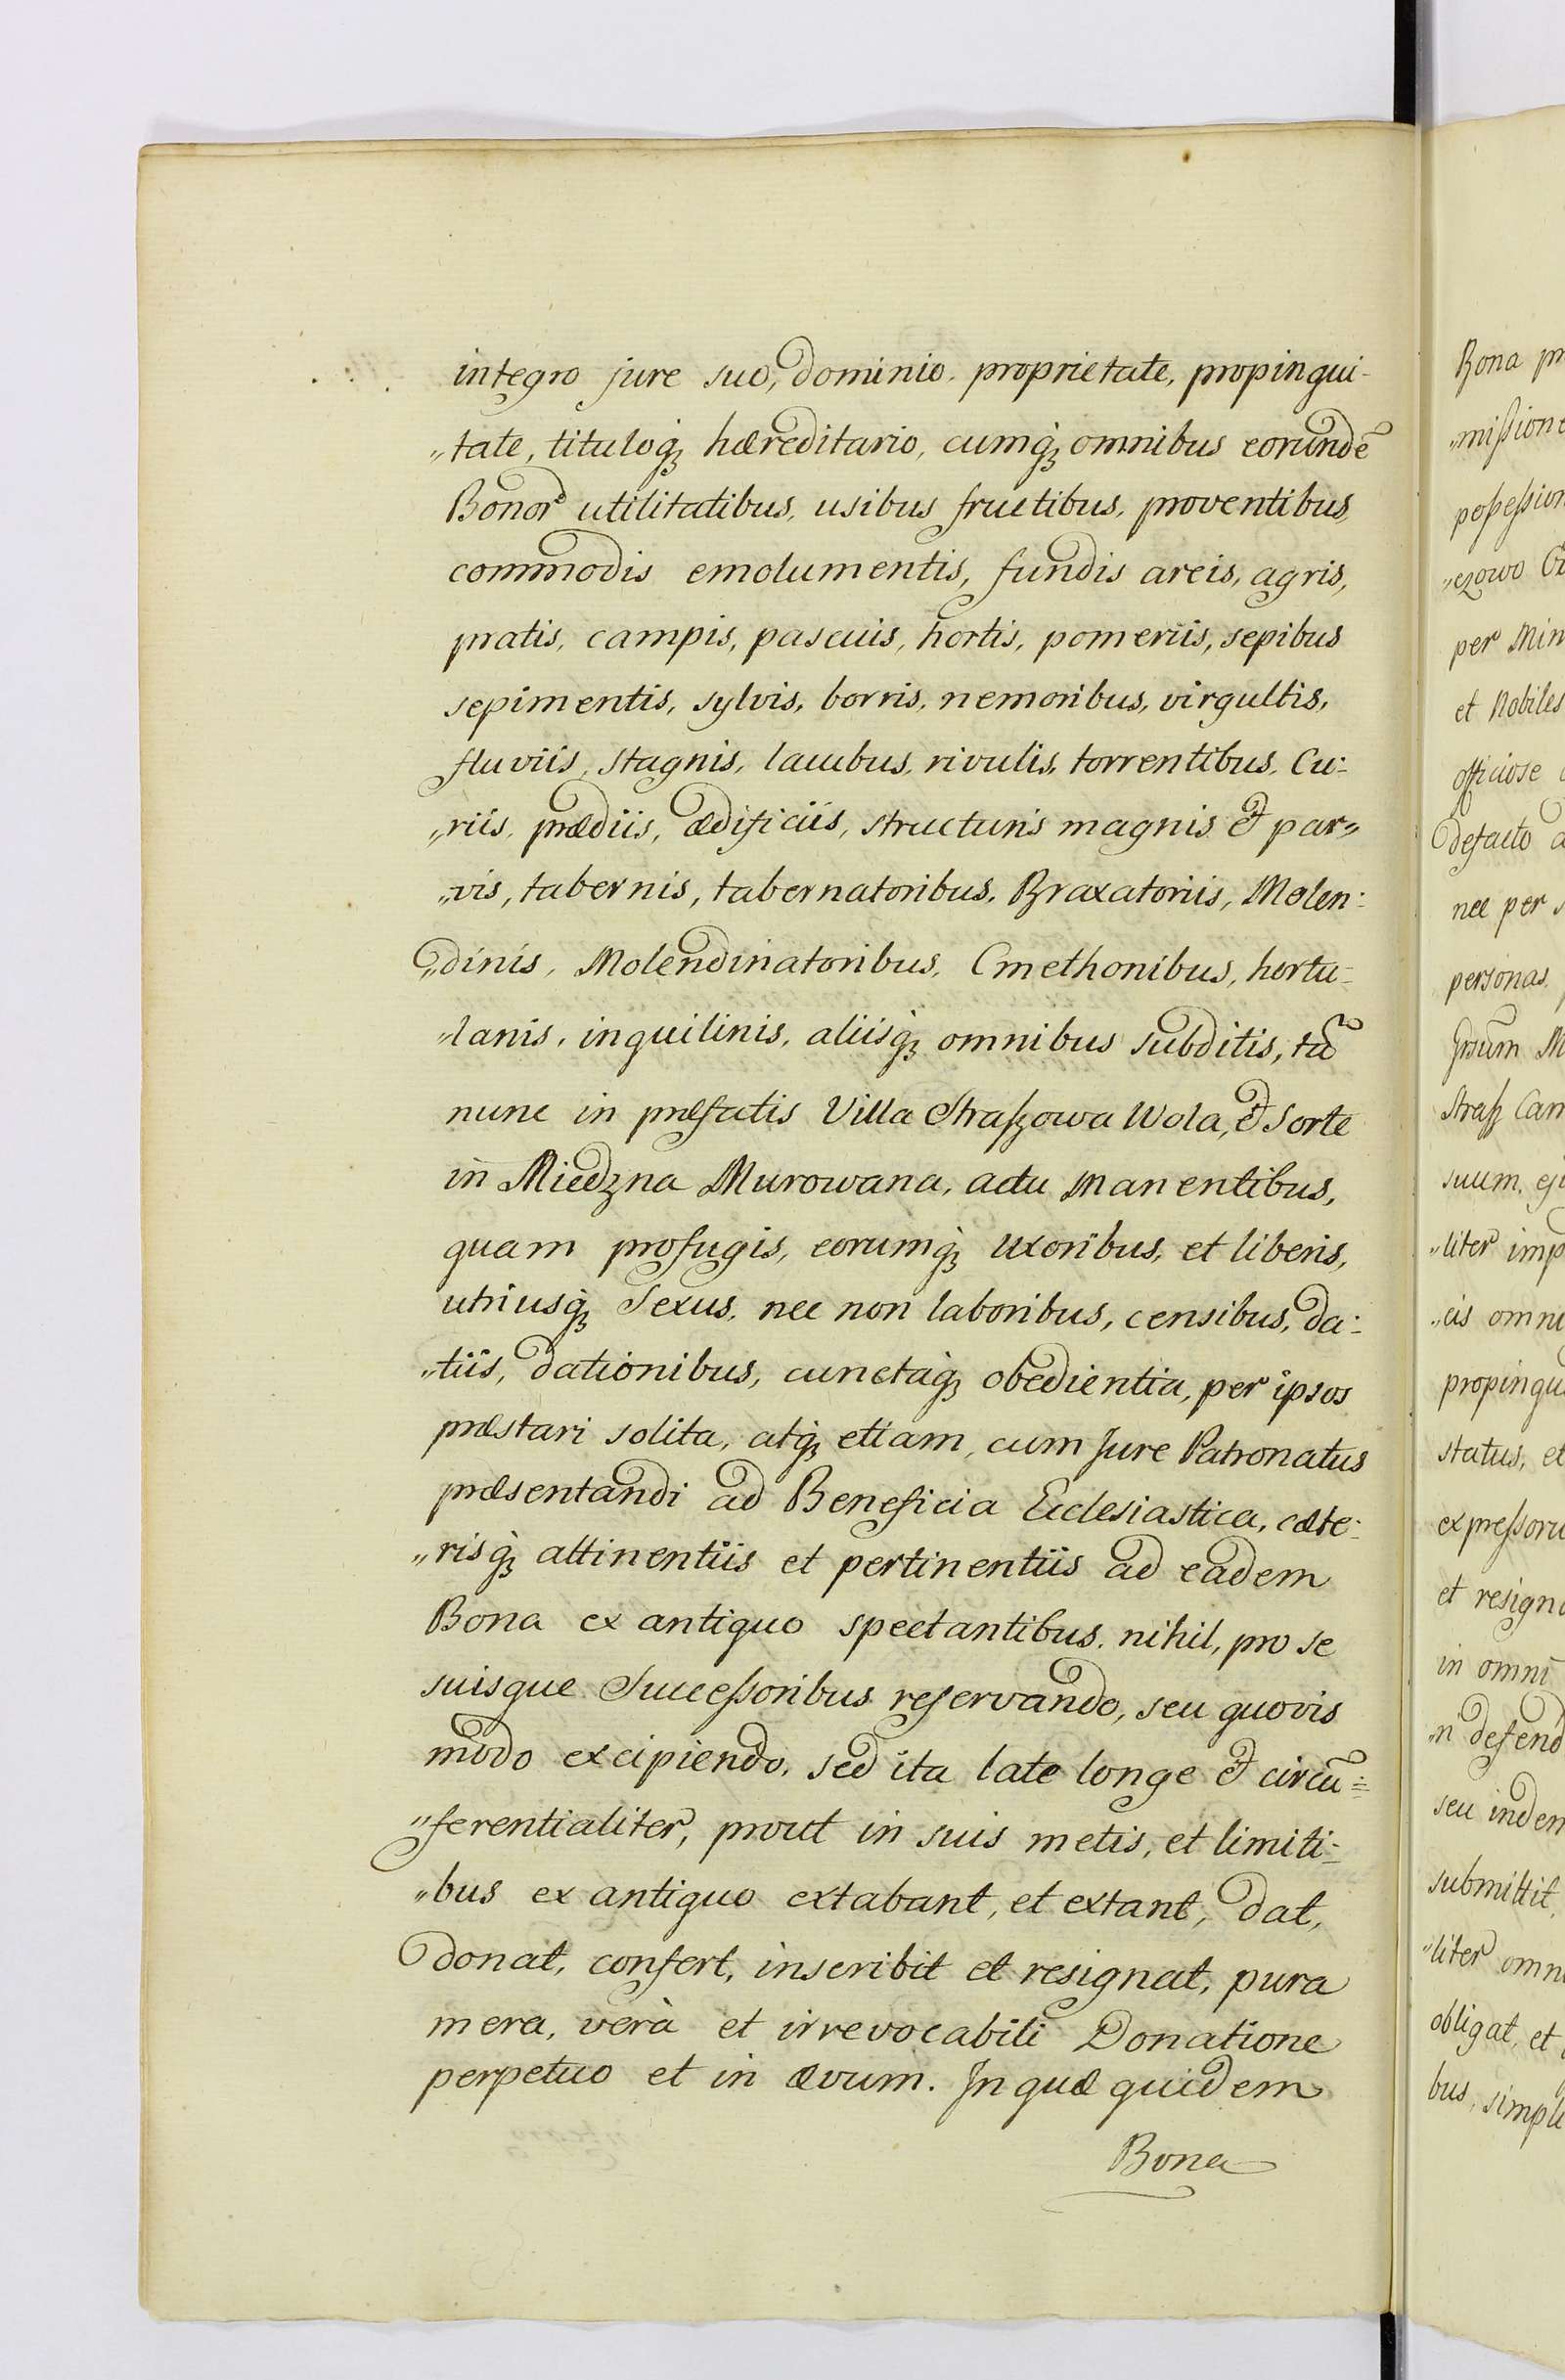 integro jure suo, dominio, proprietate, propingui-
„tate, tituloq́ꝫ hæreditario, cumq́ꝫ omnibus eorundẽ
Bonor̃ utilitatibus, usibus fructibus, proventibus,
commodis emolumentis, fundis areis, agris,
pratis, campis, pascuis, hortis, pomeriis, sepibus
sepimentis, sylvis, borris, nemoribus, virgultis,
fluviis, stagnis, lacubus, rivulis, torrentibus, Cu:
„riis, prædiis, ædificiis, structuris magnis et par„
„vis, tabernis, tabernatoribus, Braxatoriis, Molen:
„dinis, Molendinatoribus, Cmethonibus, hortu-
„lanis, inquilinis, aliisq́ꝫ omnibus subditis, tũ
nunc in præfatis Villa Straszowa Wola, et Sorte
in Miedzna Murowana, actu manentibus,
quam profugis, eorumq́ꝫ uxoribus, et liberis,
utriusq́ꝫ Sexus, nec non laboribus, censibus, da:
„tiis, dationibus, cunctaq́ꝫ obedientia, per ipsos
præstari solita, atq́ꝫ etiam, cum Jure Patronatus
præsentandi ad Beneficia Ecclesiastica, cæte:
„risq́ꝫ attinentiis et pertinentiis ad eadem
Bona ex antiquo spectantibus, nihil, pro se
suisque Successoribus reservando, seu quovis
modo excipiendo, sed ita late longe et circũ:
„ferentialiter, prout in suis metis, et limiti:
„bus ex antiquo extabant, et extant, dat,
donat, confert, inscribit et resignat, pura
mera, verà et irrevocabili Donatione
perpetuo et in ævum. In quæ quidem
Bona
Bona
„missione
possession
„ezowo
per Min
et Nobiles
officiose
defacto a
nec per
personas,
Ipsum M
Strasz Cam
suum, ej
„liter imp
„cis omni
propinqu
status, et
expressoru
et resign
in omni
„n defend
seu indem
submittit,
„liter omn
obligat, et
bus, simpli